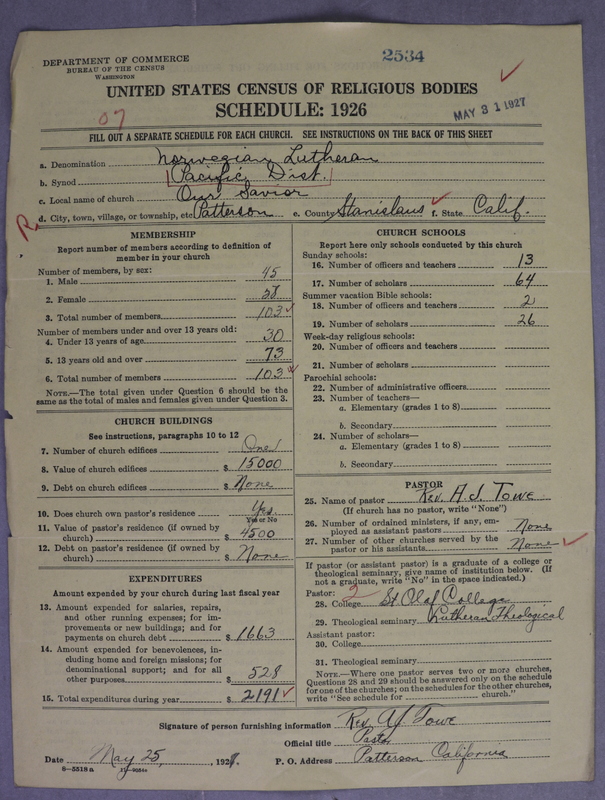 DEPARTMENT OF COMMERCE
BUREAU OF THE CENSUS
WASHINGTON
2534
UNITED STATES CENSUS OF RELIGIOUS BODIES
SCHEDULE: 1926
07
MAY 31 1927
FILL OUT A SEPARATE SCHEDULE FOR EACH CHURCH. SEE INSTRUCTIONS ON THE BACK OF THIS SHEET
a. Denomination Norwegian Lutheran
b. Synod Pacific Dist.
c. Local name of church Our Savior
d. City, town, village, or township, etc. Patterson e. County Stanislaus f. State Calif.
R
MEMBERSHIP
Report number of members according to definition of member in your church
Number of members, by sex:
1. Male 45
2. Female 58
3. Total number of members 103
Number of members under and over 13 years old:
4. Under 13 years of age 30
5. 13 years old and over 73
6. Total number of members 103
NOTE.—The total given under Question 6 should be the same as the total of males and females given under Question 3.
CHURCH BUILDINGS
See instructions, paragraphs 10 to 12
7. Number of church edifices One
8. Value of church edifices $ 15000
9. Debt on church edifices $ None
10. Does church own pastor's residence Yes
Yes or No
11. Value of pastor's residence (if owned by church) $ 4500
12. Debt on pastor's residence (if owned by church) $ None
EXPENDITURES
Amount expended by your church during last fiscal year
13. Amount expended for salaries, repairs, and other running expenses; for improvements or new buildings; and for payments on church debt $ 1663
14. Amount expended for benevolences, including home and foreign missions; for denominational support; and for all other purposes $ 528
15. Total expenditures during year $ 2191
CHURCH SCHOOLS
Report here only schools conducted by this church
Sunday schools:
16. Number of officers and teachers 13
17. Number of scholars 64
Summer vacation Bible schools:
18. Number of officers and teachers 2
19. Number of scholars 26
Week-day religious schools:
20. Number of officers and teachers
21. Number of scholars
Parochial schools:
22. Number of administrative officers
23. Number of teachers—
a. Elementary (grades 1 to 8)
b. Secondary
24. Number of scholars—
a. Elementary (grades 1 to 8)
b. Secondary
PASTOR
25. Name of pastor Rev. A. J. Towe
(If church has no pastor, write "None")
26. Number of ordained ministers, if any, employed as assistant pastors None
27. Number of other churches served by the pastor or his assistants None
If pastor (or assistant pastor) is a graduate of a college or theological seminary, give name of institution below. (If not a graduate, write "No" in the space indicated.)
Pastor: 2
28. College St Olaf College
29. Theological seminary Lutheran Theological
Assistant pastor:
30. College
31. Theological seminary
NOTE.—Where one pastor serves two or more churches, Questions 28 and 29 should be answered only on the schedule for one of the churches; on the schedules for the other churches, write "See schedule for church."
Signature of person furnishing information Rev. A J Towe
Official title Pastor
Date May 25, 1927. P. O. Address Patterson California
8—5518 a